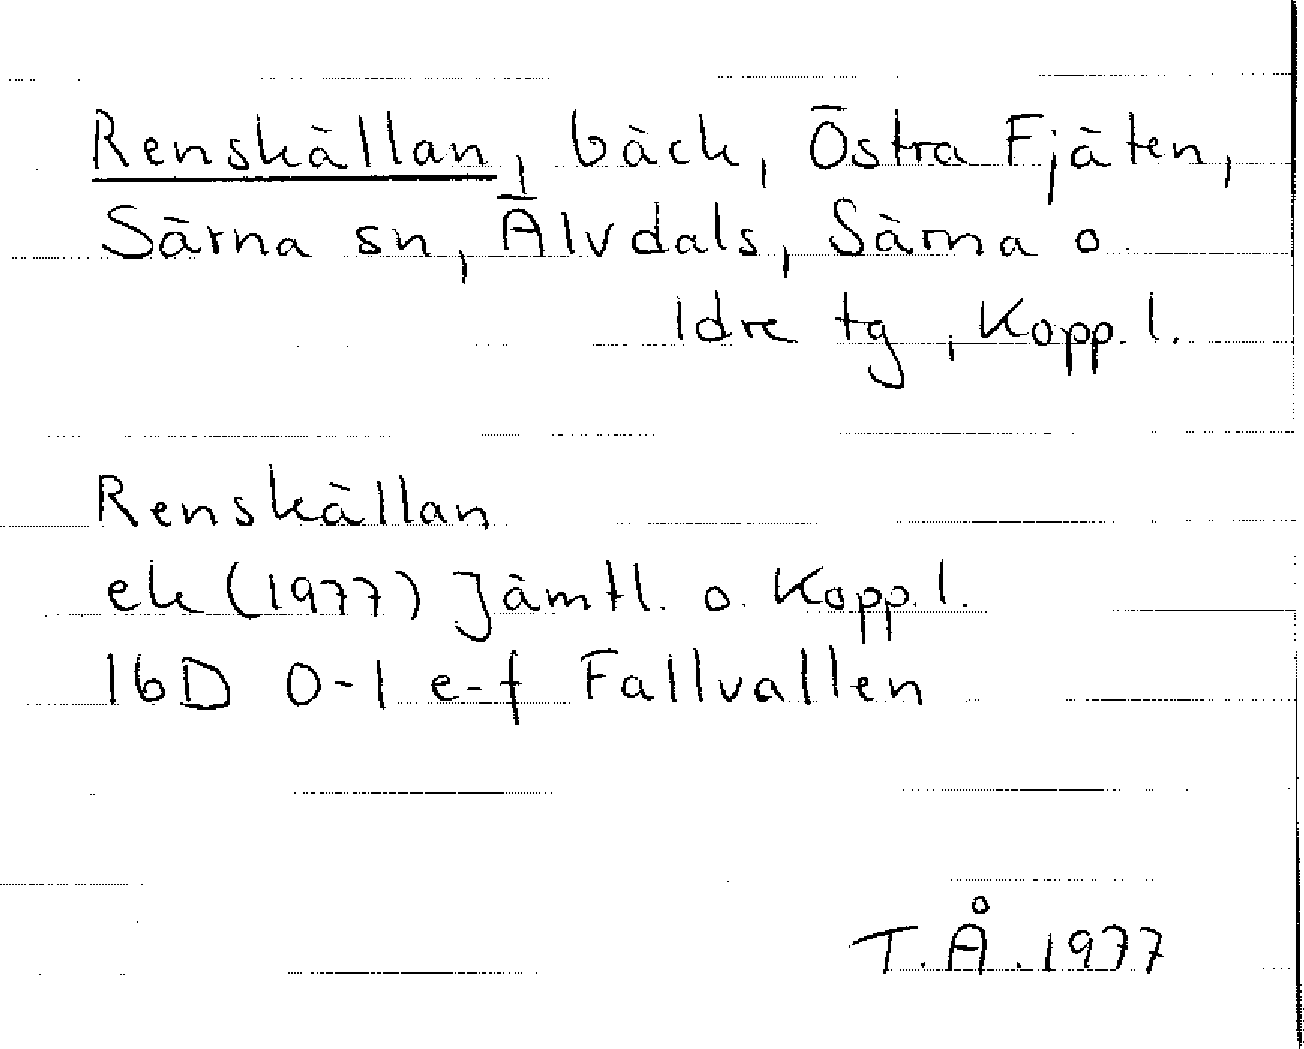 Renskällan, bäck, Östra Fjäten,
Särna sn, Älvdals, Särna o
Idre tg, Kopp. l.
Renskällan
ek (1977) Jämtl. o. Kopp. l.
16D 0-1 e-f Fallvallen
T.Å. 1977